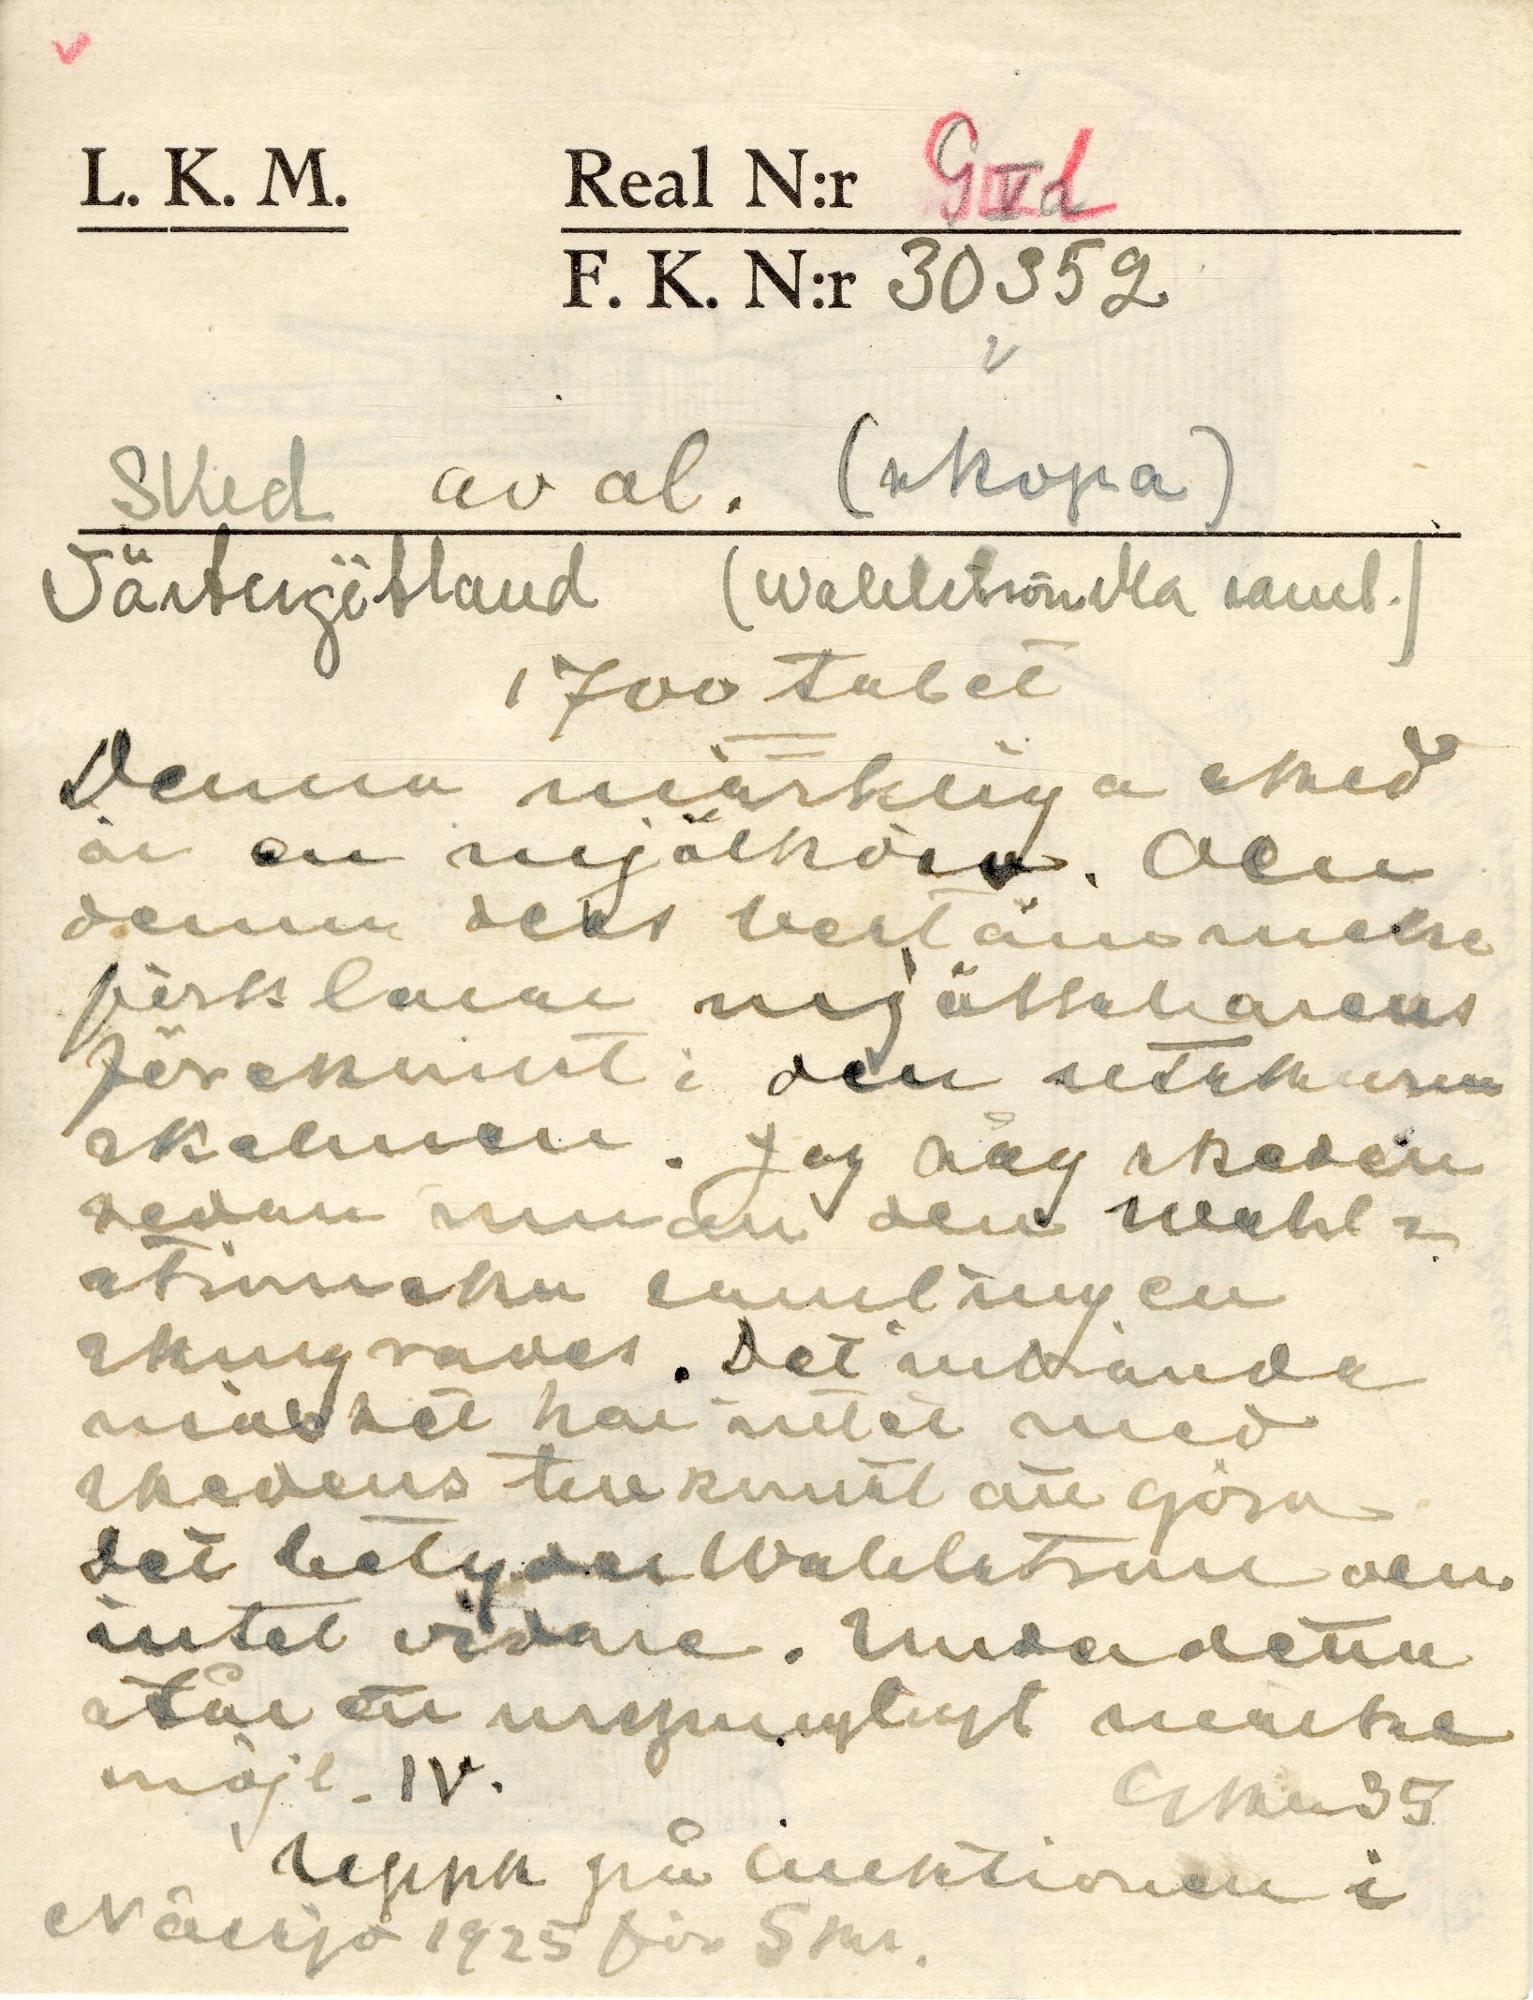 L. K. M. Real N:r GIVd
F. K. N:r 30352
Sked av al. (skopa)
Västergötland (Wahlströmska saml.)
1700 talet
Denna märkliga sked
är en mjölkösa. Om
denna dess bestämmelse
förklarar
förekomst i den utskurna
Jag såg skeden
sedan innan den Wahl-
strömska samlingen
skingrades. Det inbrända
märket har intet med
skedens tillkomst att göra
det betyder Wahlström och
intet vidare. Under detta
står ett ursprungligt märke
möjl. IV.
35
på auktionen i
Nässjö 1925 för 5 kr.